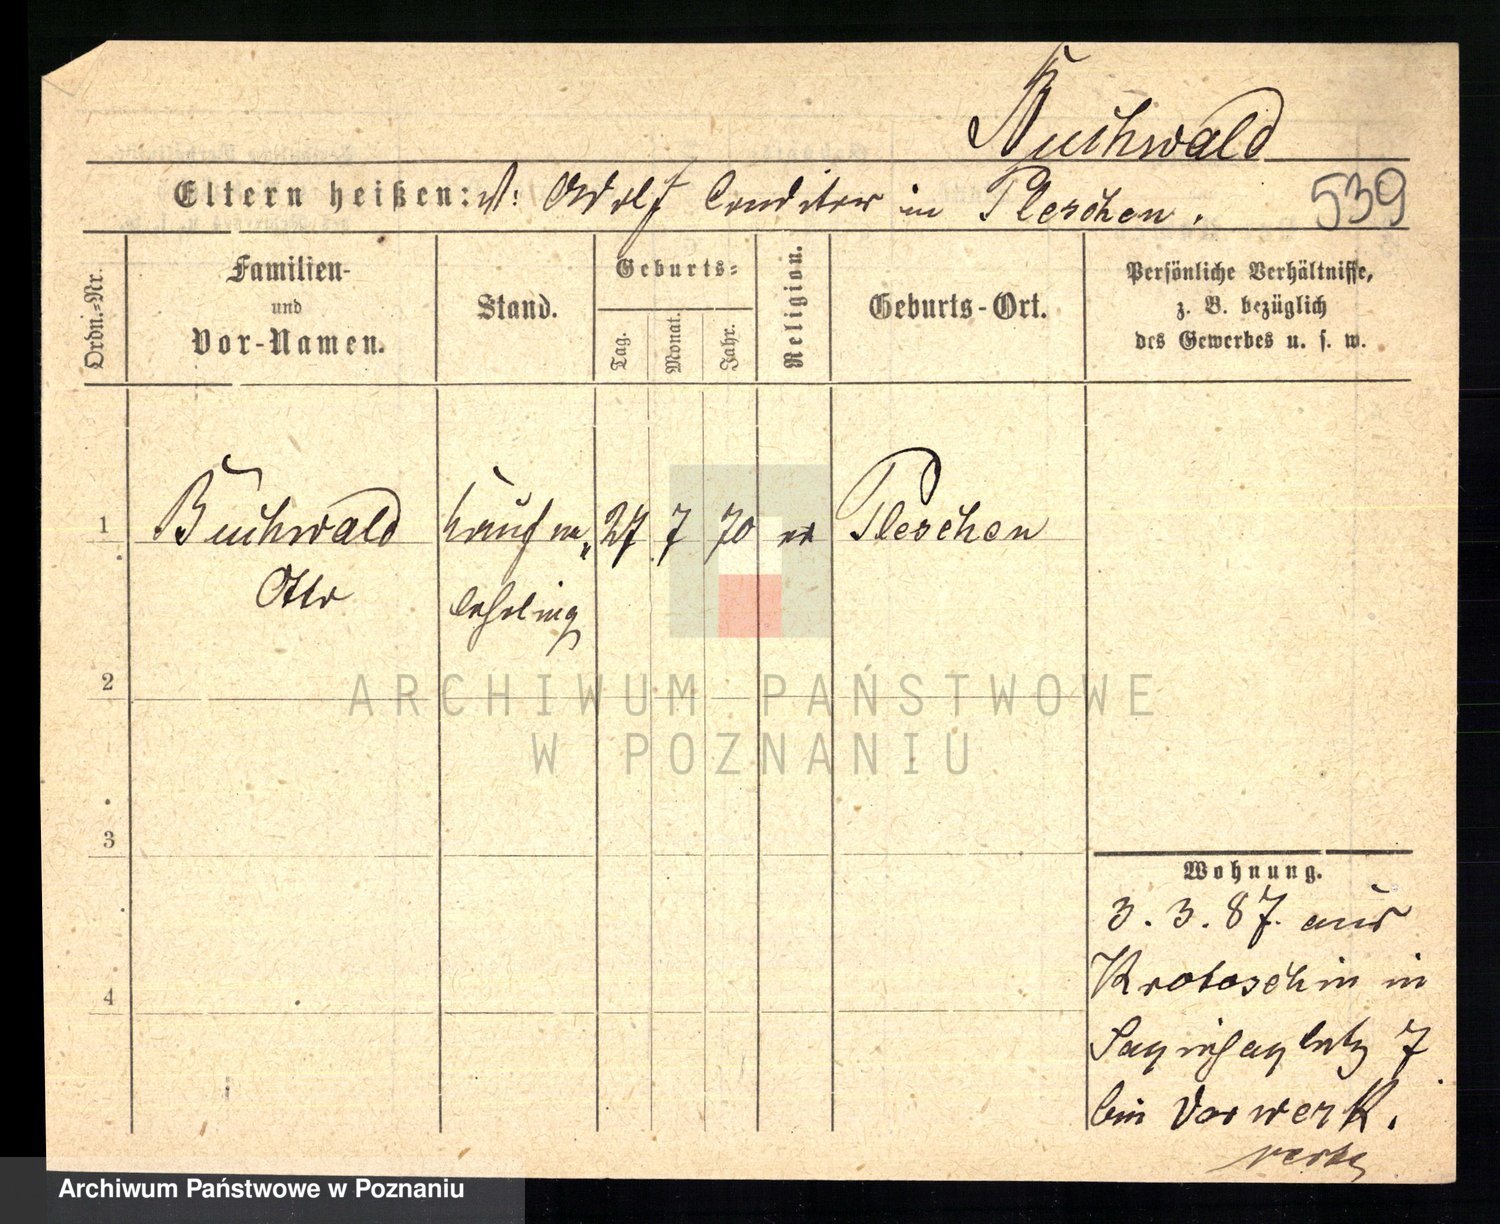 Buchwald
Eltern heißen: V: Adolf Conditor in Pleschen.
539
Ordn.-Nr.
Familien-
und
Vor-Namen.
Stand.
Geburts-
Tag.
Monat.
Jahr.
Religion.
Geburts-Ort.
Persönliche Verhältnisse,
z. B. bezüglich
des Gewerbes u. s. w.
1 Buchwald Kaufm. 27 7 70 ev Pleschen
Otto lehrling
2
ARCHIWUM PAŃSTWOWE
W POZNANIU
3
Wohnung.
3. 3. 87. aus
Krotoschin in
4
Sapiehaplatz 7
bei Vorwerk.
Archiwum Państwowe w Poznaniu